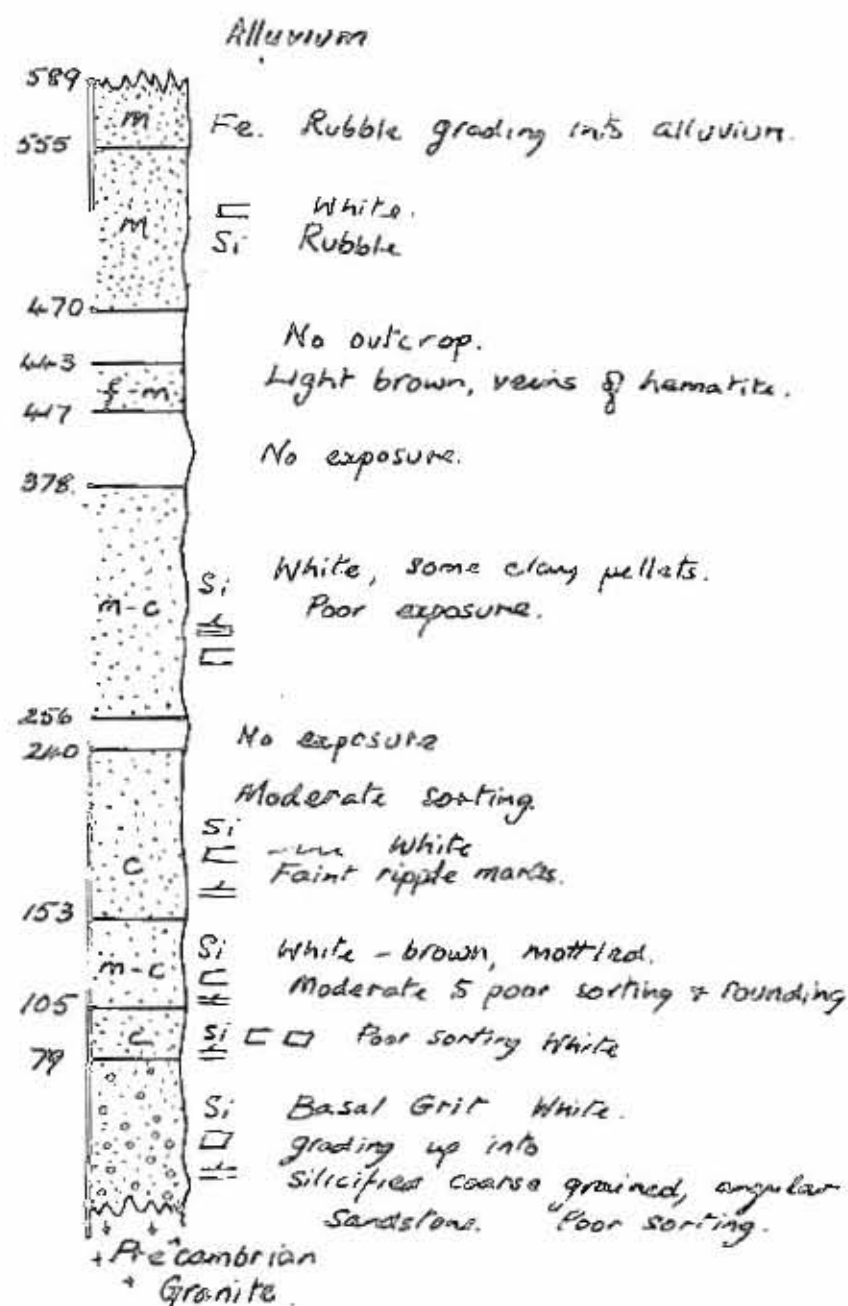 Alluvium
589
m Fe. Rubble grading into alluvium.
555
m White.
Si Rubble
470
No outcrop.
443
f-m Light brown, veins of hematite.
417
No exposure.
378.
Si White, some clay pellets.
m-c Poor exposure.
256
No exposure
240
Moderate sorting
Si
White
c Faint ripple marks.
153
Si White - brown, mottled.
m-c Moderate 5 poor sorting & rounding
105
c Si Poor sorting White
79
Si Basal Grit White.
grading up into
silicified coarse grained, angular
Sandstone. Poor sorting.
Precambrian
Granite.